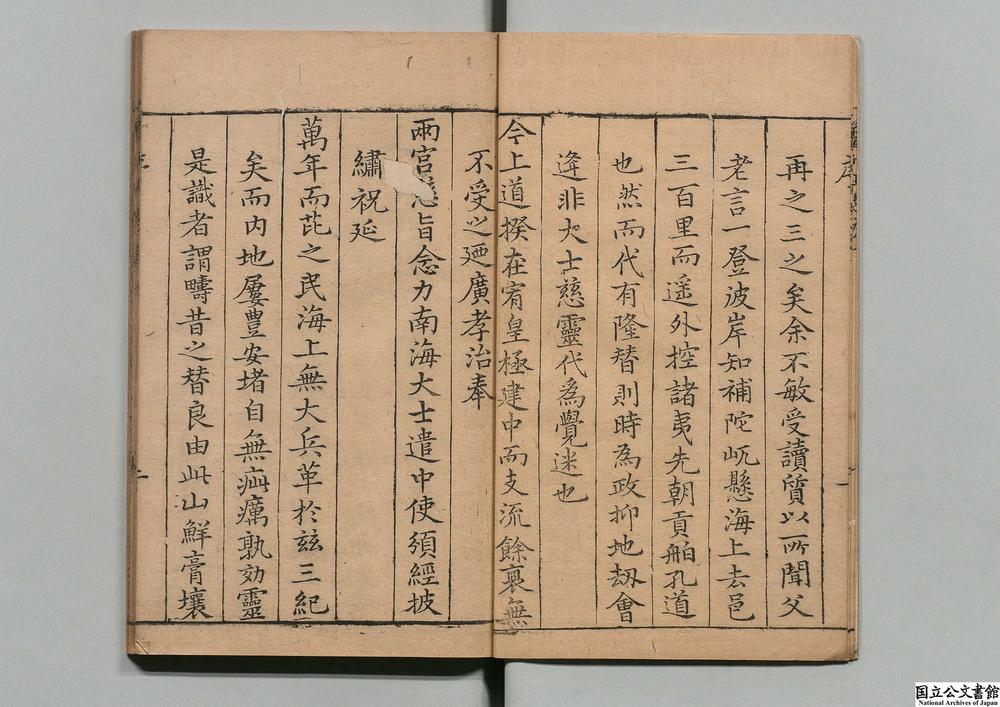 再之三之矣余不敏受讀質以所聞父
老言一登波岸知補陀屼懸海上去邑
三百里而遥外控諸夷先朝貢舶孔道
也然而代有隆替則時為政抑地刼會
逢非大士慈靈代為覺迷也
今上道揆在宥皇極建中而支流餘裔無
不受之廼廣孝治奉
兩宮慈旨念力南海大士遣中使須經披
繡祝延
萬年而茈之民海上無大兵革於兹三紀
矣而内地屢豊安堵自無疵癘孰効靈
是識者謂疇昔之替良由此山鮮膏壤
序
国立公文書館
National Archives of Japan